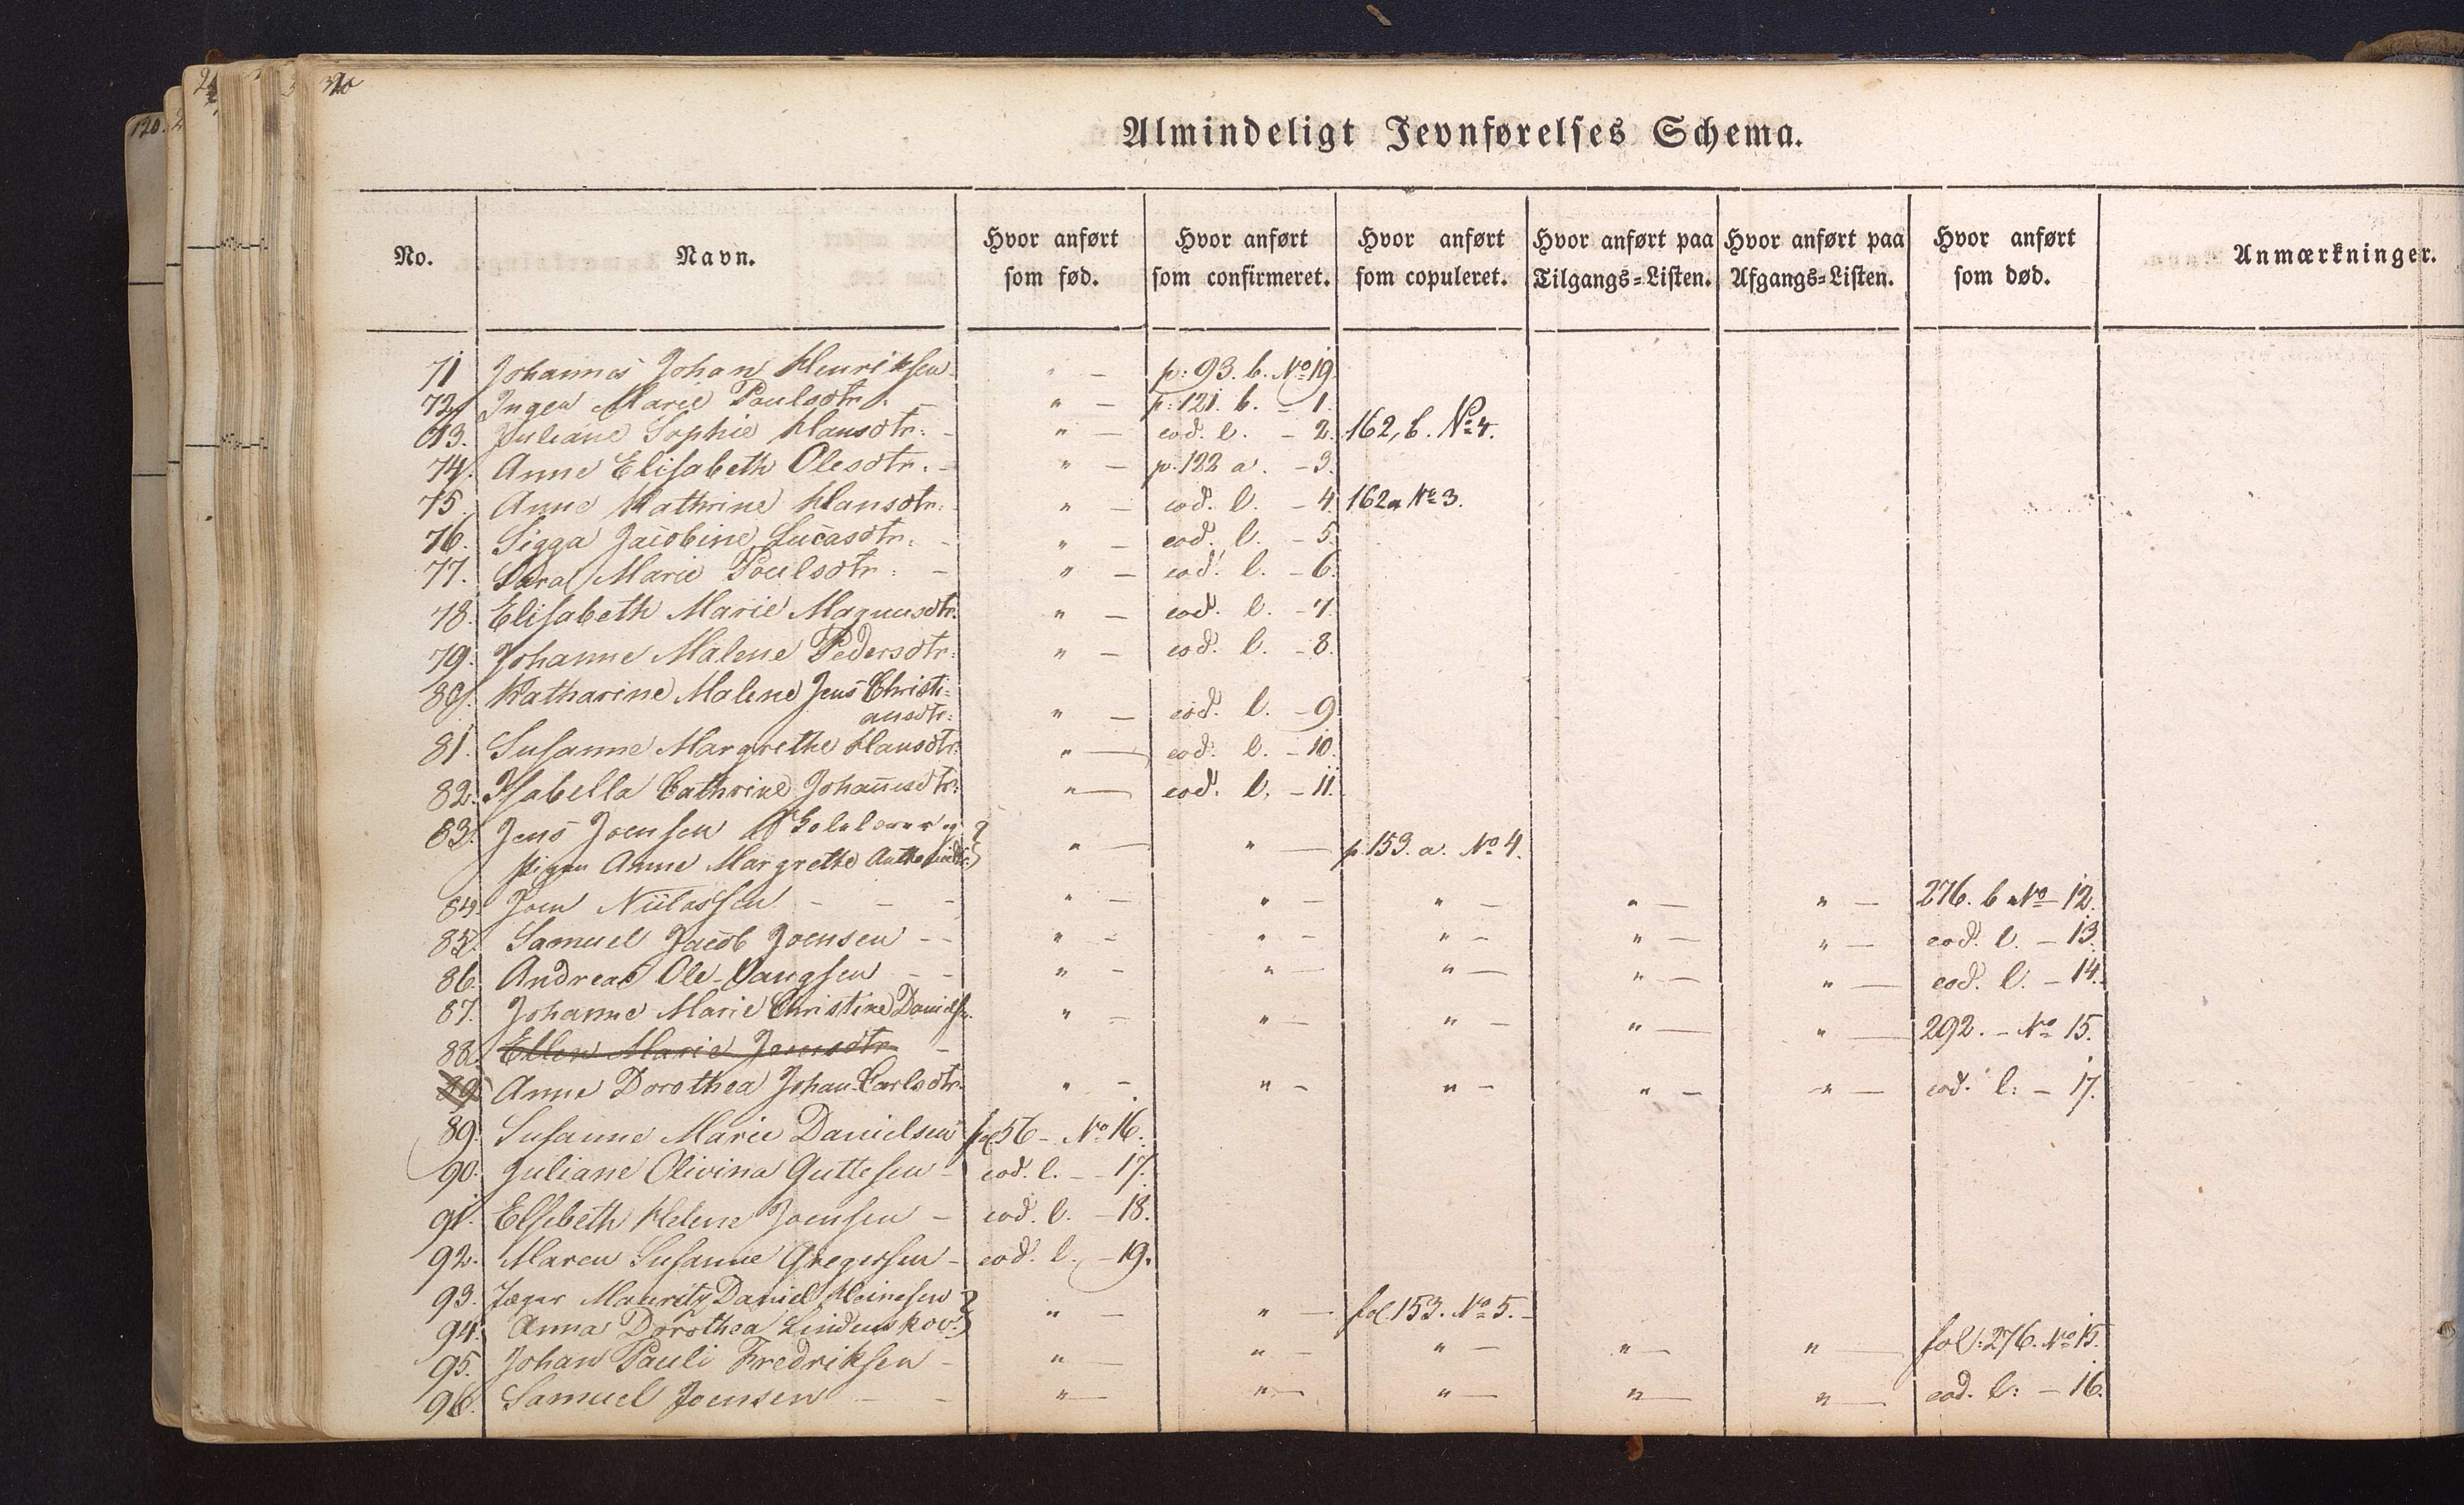 Almindeligt Jevnførelses Schema.
No. Navn. Hvor anført som fød. Hvor anført som confirmeret. Hvor anført som copuleret. Hvor anført paa Tilgangs-Listen. Hvor anført paa Afgangs-Listen. Hvor anført som død. Anmærkninger.
71 Johannes Johan Henriksen " — p: 93. b. No 19.
72. Ingen Marie Poulsdtr. — " — p: 121. b. — 1.
73. Juliane Sophie Hansdtr. — " — eod. l. — 2. 162, b. No 4.
74. Anne Elisabeth Olesdtr. — " — p. 122 a. — 3.
75. Anne Kathrine Hansdtr. " — eod. l. — 4. 162a No 3.
76. Sigga Jacobine Lucasdtr. — " — eod. l. — 5.
77. Sara Marie Poulsdtr. — " — eod. l. — 6.
78. Elisabeth Marie Magnusdtr. " — eod. l. — 7.
79. Johanne Malene Pedersdtr. " — eod. l. — 8.
80. Katharine Malene Jens Christi=
ansdtr. " — eod. l. — 9.
81. Susanne Margrethe Hansdtr. " — eod. l. — 10.
82. Isabella Cathrine Johannesdtr. " — eod. l. — 11.
83. Jens Joensen
pigen Anne Margrethe " — " — p. 153. a. No 4.
84. Joen — — — " — " — " — " — " — 276. b No 12.
85. Samuel Jacob Joensen — — " — " — " — " — " — eod. l. — 13.
86. Andreas Ole — — " — " — " — " — " — eod. l. — 14.
87. Johanne Marie Christine " — " — " — " — " — 292. — No 15.
88. Ellen Marie Jensdtr —
89. Anne Dorothea Johan Carlsdtr. " — " — " — " — " — eod. l: — 17.
89. Susanne Marie Danielsen fol. 56 — No 16.
90. Juliane Olivina Guttesen — eod. l. — 17.
91. Elsebeth Helene Joensen — eod. l. — 18.
92. Maren Susanne Gregersen — eod. l. — 19.
93. Jæger Mauritz Daniel Heinesen
94. Anna Dorothea Lindenskov. " — " — fol 153. No 5. —
95. Johan Pauli Fredriksen — " — " — " — " — " — fol: 276. No 15.
96. Samuel Joensen — — " — " — " — " — " — eod. l: — 16.